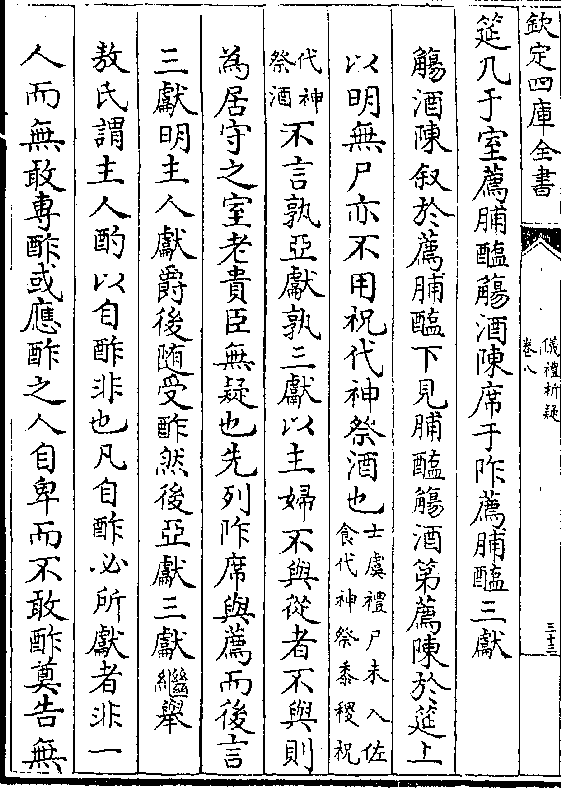 欽定四庫全書
儀禮析疑
卷八
三十三
筵几于室薦脯醢觴酒陳席于阼薦脯醢三獻
觴酒陳叙於薦脯醢下見脯醢觴酒第薦陳於筵上
以明無尸亦不用祝代神祭酒也士虞禮尸未入佐食代神祭黍稷祝
代神祭酒不言孰亞獻孰三獻以主婦不與從者不與則
為居守之室老貴臣無疑也先列阼席與薦而後言
三獻明主人獻爵後隨受酢然後亞獻三獻繼舉
敖氏謂主人酌以自酢非也凡自酢必所獻者非一
人而無敢專酢或應酢之人自卑而不敢酢奠告無